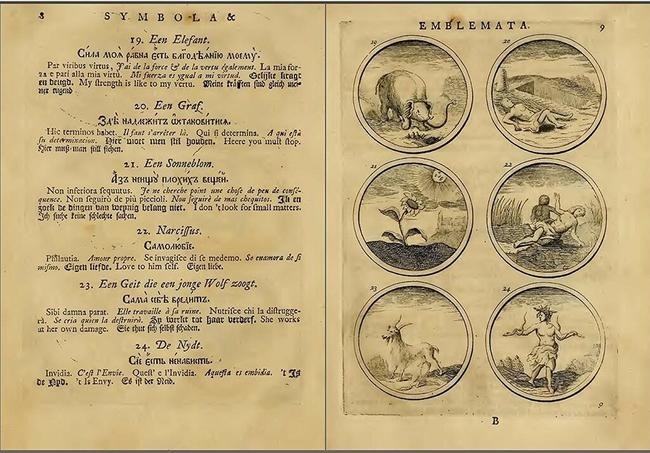 8 SYMBOLA &
19. Een Elefant.
Сила моѧ равна єсть благодѣѧнїю моемꙋ.
Par viribus virtus, J'ai de la force & de la vertu également. La mia for-
za e pati alla mia virtù. Mi fuerza es ygual a mi virtud. Gelijke kragt
en deugd. My strength is like to my vertu. Meine kräfften sind gleich mei-
ner tugend
20. Een Graf.
Здѣ надлежитъ
Hic terminos habet. Il faut s'arrêter là. Qui si determina. A qui está
su determinacion. Hier moet men stil houden. Heere you must stop.
Hier muß man still stehen.
21. Een Sonneblom.
Азъ нищꙋ плохихъ вещей.
Non inferiora sequutus. Je ne cherche point une chose de peu de consé-
quence. Non seguirò de più piccioli. Non seguirè de mas chequitos. Ik en
zoek de dingen van weynig belang niet. I don't look for small matters.
Ich suche keine schlechte sachen.
22. Narcissus.
Самолюбїе.
Philautia. Amour propre. Se invagisce di se medemo. Se enamora de si
mismo. Eigen liefde. Love to him self. Eigen liebe.
23. Een Geit die een jonge Wolf zoogt.
Сама себѣ вредитъ.
Sibi damna parat. Elle travaille à sa ruine. Nutrisce chi la distrugge-
rà. Se cria quien la destruirà. Sy werkt tot haar verderf. She works
at her own damage. Sie thut sich selbst schaden.
24. De Nydt.
єсть ненависть.
Invidia. C'est l'Envie. Quest' e l'Invidia. Aquesta es embidia. 't Is
de Nyd. 't Is Envy. Es ist der Neid.
EMBLEMATA. 9
19 20
21 22
23 24
9
B